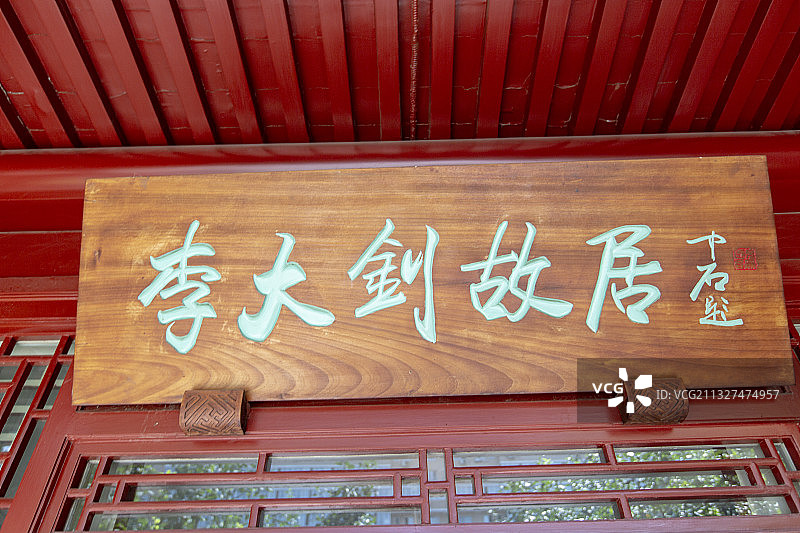 李大钊故居
中石题
VCG 视觉中国
VCG211327474957